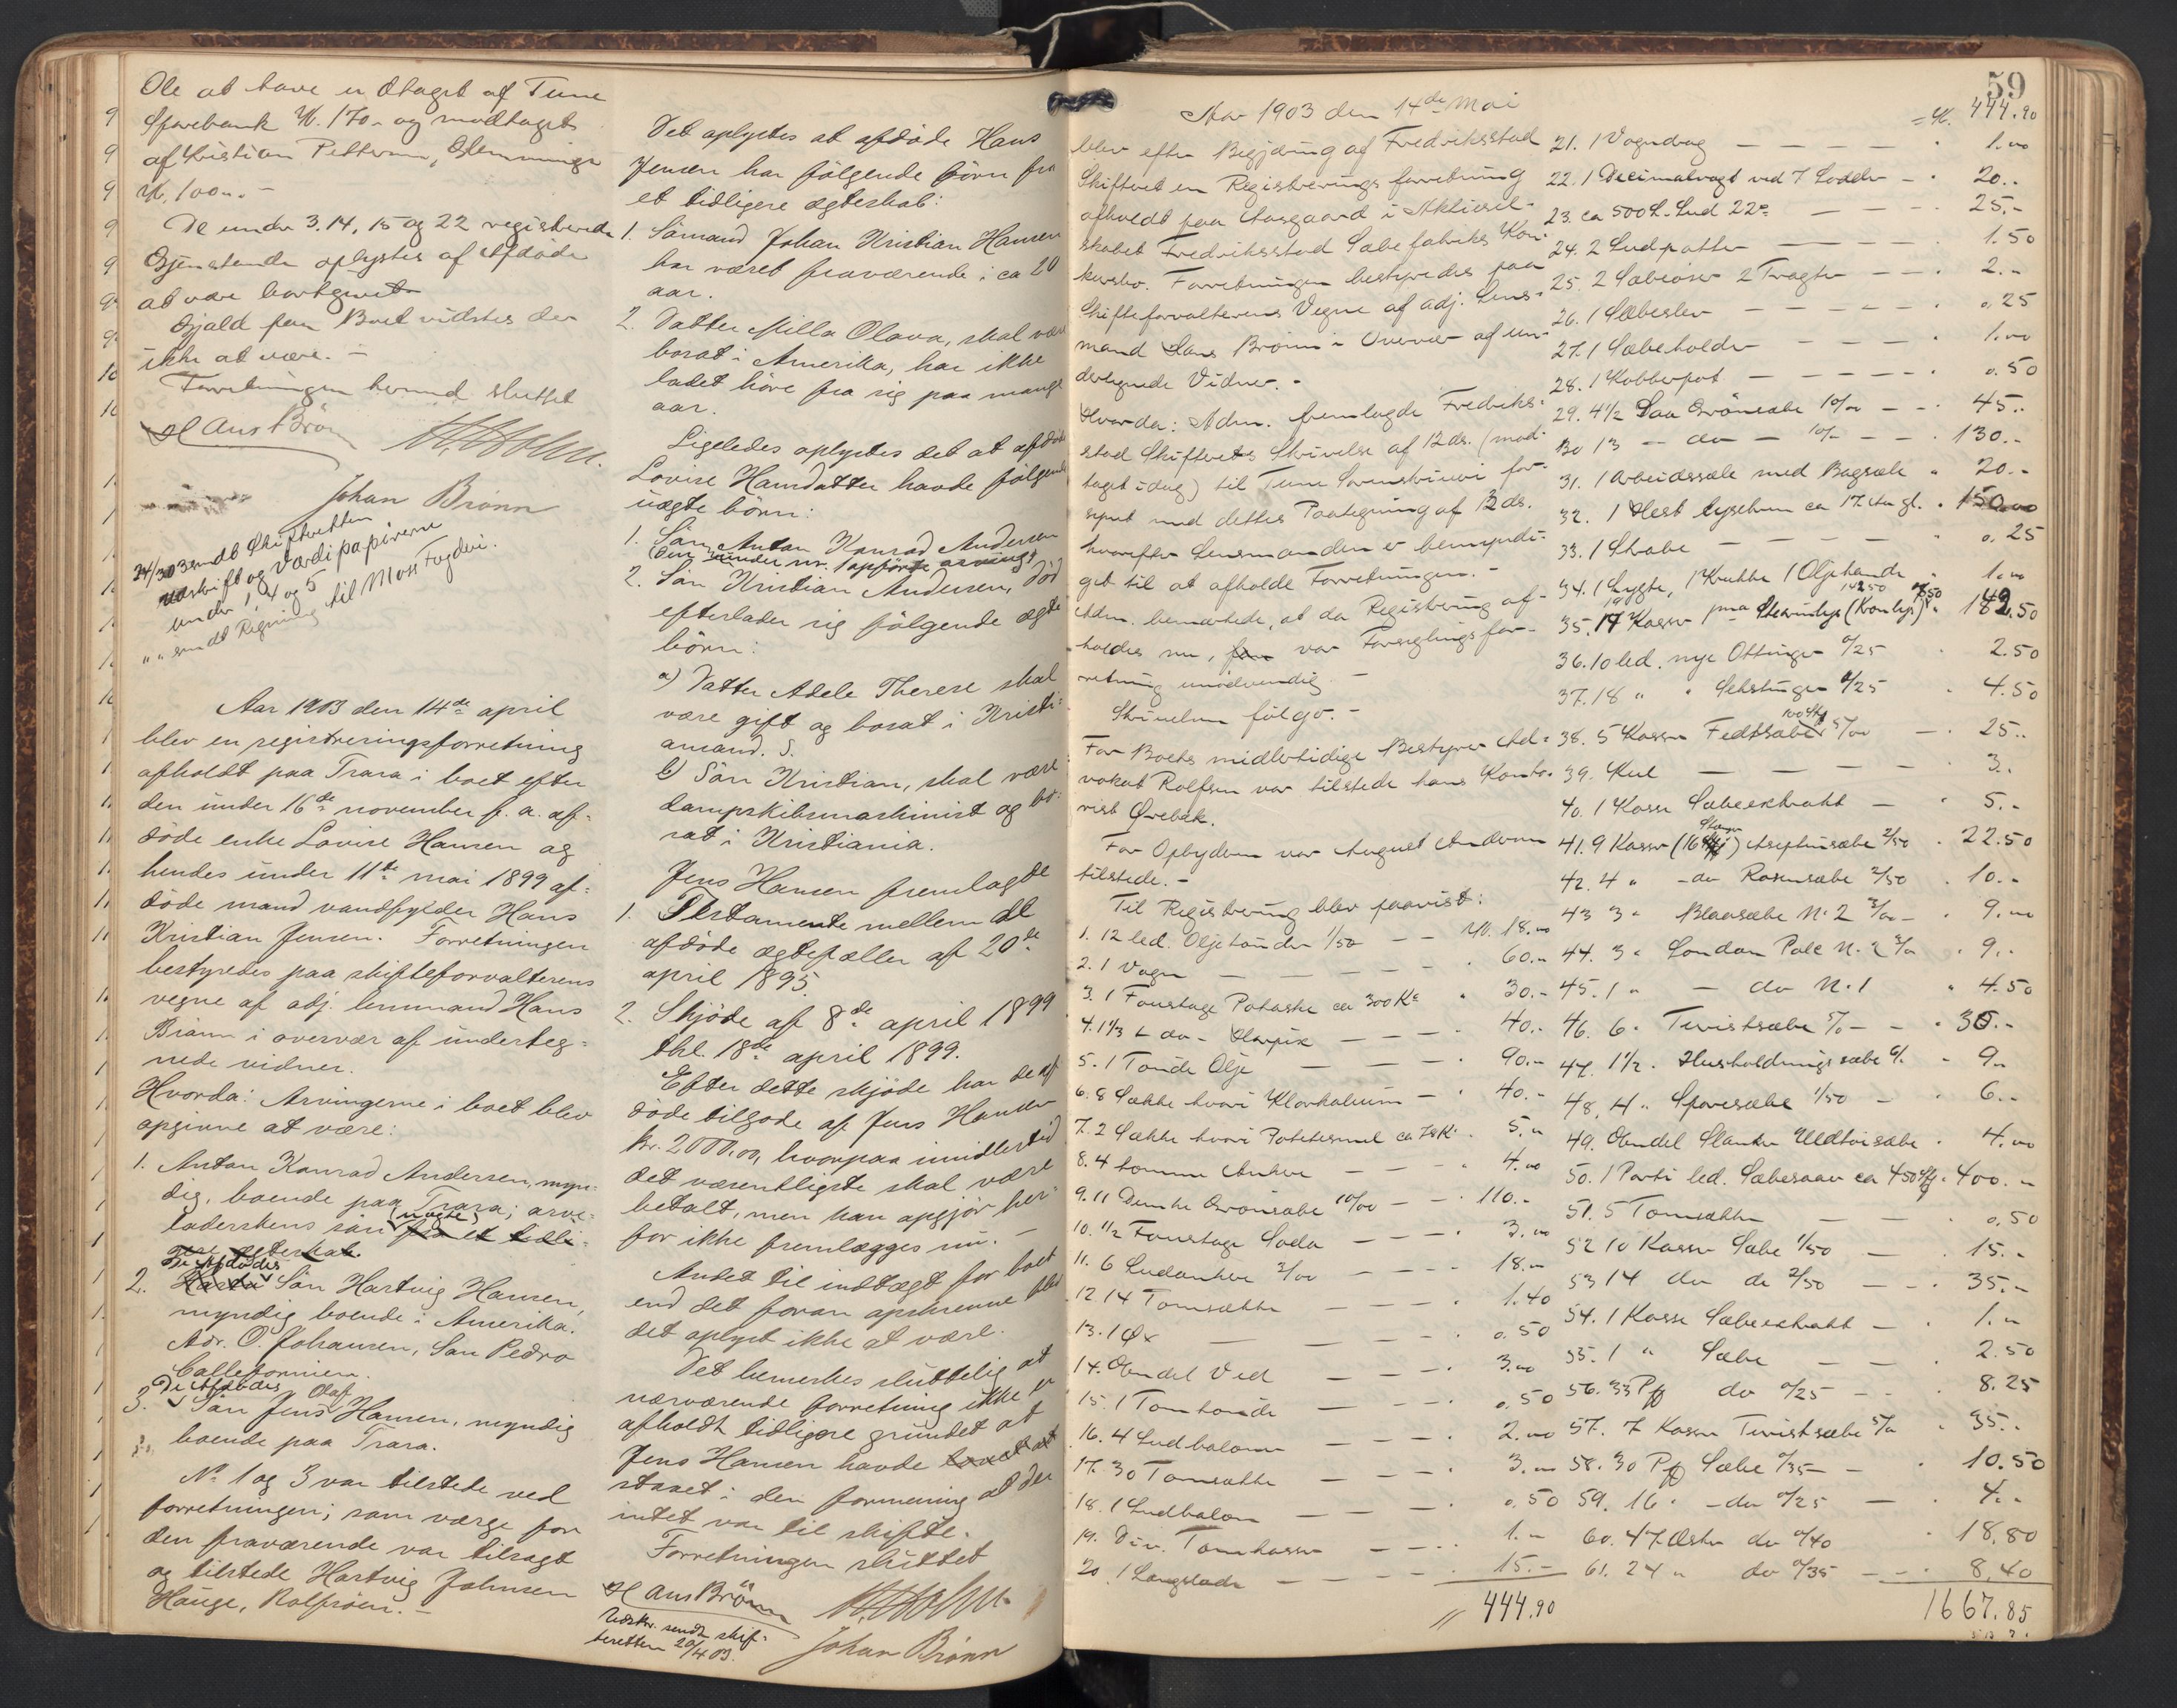 Ole at have udtaget af Tune
Sparebank Kr. 170.- og modtaget
af Kristian Pettersen, Glemminge
Kr. 100.-
De under 3. 14, 15 og 22 registrerede
Gjenstande oplystes af Afdøde
at være bortgivet
Gjæld paa Boet vidstes der
ikke at være. -
Forretningen hermed sluttet
Hans Brønn
Johan Brønn
24/3 03 sendt Skifteretten
Udskrift og Værdipapirerne
under 1, 4 og 5
" " sendt Regning til Moss Fogderi.
Aar 1903 den 14de april
blev en registreringsforretning
afholdt paa Trara i boet efter
den under 16de november f. a. af-
døde enke Lovise Hansen og
hendes under 11te mai 1899 af-
døde mand vandfylder Hans
Kristian Jensen. Forretningen
bestyredes paa skifteforvalterens
vegne af adj. lensmand Hans
Brønn i overvær af underteg-
nede vidner.
Hvorda: Arvingerne i boet blev
opgivne at være:
1. Anton Konrad Andersen, myn-
dig, boende paa Trara; arve-
laderskens søn (uægte) fra et tidli-
gere ægteskab.
De Afdødes
2. Søn Hartvig Hansen,
myndig boende i Amerika.
Adr. O. Johansen, San Pedro
Calleformien.
De Afdødes
3. Søn Jens Olaf Hansen, myndig
boende paa Trara.
No 1 og 3 var tilstede ved
forretningen; som værge for
den fraværende var tilsagt
og tilstede Hartvig Johnsen
Hauge, Rolfsøen. -
Det oplystes at afdøde Hans
Jensen har følgende børn fra
et tidligere ægteskab:
1. Sømand Johan Kristian Hansen
har været fraværende i ca 20
aar.
2. Datter Milla Olava, skal være
bosat i Amerika, har ikke
ladet høre fra sig paa mange
aar.
Ligeledes oplystes det at afdøde
Lovise Hansdatter havde følgende
uægte børn:
1. Søn Anton Konrad Andersen
(den under nr. 1 opførte arving)
2. Søn Kristian Andersen, død
efterlader sig følgende ægte
børn:
a) Datter Adele Therese skal
være gift og bosat i Kristi-
ansand. S.
b) Søn Kristian, skal være
dampskibsmaskinist og bo-
sat i Kristiania.
Jens Hansen fremlagde
1. Testamente mellem de
afdøde ægtefæller af 20de
april 1895.
2. Skjøde af 8de april 1899
thl. 18de april 1899.
Efter dette skjøde har de af-
døde tilgode af Jens Hansen
kr. 2000.00, hvorpaa imidlertid
det væsentligste skal være
betalt, men han opgjør her-
for ikke fremlægges nu. -
Andet til indtægt for boet
end det foran opskrevne blev
det oplyst ikke at være.
Det bemerkes sluttelig at
nærværende forretning ikke er
afholdt tidligere grundet at
Jens Hansen havde
staaet i den formening at der
intet var til skifte.
Forretningen sluttet
Hans Brønn
Johan Brønn
Udskr. sendt skif-
teretten 20/4 03.
59
Aar 1903 den 14de Mai
blev efter Begjæring af Fredriksstad
Skifteret en Registreringsforretning
afholdt paa Aasgaard i Aktiesel-
skabet Fredriksstad Sæbefabriks Kon-
kursbo. Forretningen bestyredes paa
Skifteforvalterens Vegne af adj. Lens-
mand Hans Brønn i Overvær af un-
dertegnede Vidner. -
Hvorda: Adm. fremlagde Fredriks-
stad Skifterets Skrivelse af 12 ds. (mod-
taget idag) til Tune Sorenskriveri for-
synt med dettes Paategning af 13 ds.
hvorefter Lensmanden er bemyndi-
get til at afholde Forretningen. -
Adm. bemærkede, at da Registrering af-
holdes nu, var Forseglingsfor-
retning unødvendig. -
Skrivelsen følger. -
For Boets midlertidige Bestyrer Ad-
vokat Rolfsen var tilstede hans Konto-
rist Ørebek.
For Opbyderen var August Andersen
tilstede. -
Til Registrering blev paavist:
1. 12 led. Oljetønder 1/50 - - Kr. 18.00
2. 1 Vogn - - - - 60.-
3. 1 Foustage Potaske ca 300 Ko " 30.-
4. 1 1/3 - do - Harpix - - 40.-
5. 1 Tønde Olje - - - 90.-
6. 8 Sække hvori Klorkalium - 40.-
7. 2 Sække hvori Potetesmel ca 78 K. 5.-
8. 4 tomme Ankere - - - 4.00
9. 11 Dunke Grønsæbe 10/00 - - 110.-
10. 1/2 Foustage Soda - - 3.00
11. 6 Ludankere 3/00 - - - 18.-
12. 14 Tomsække - - - 1.40
13. 1 Øx - - - 0.50
14. Endel Ved - - - 3.00
15. 1 Tomtønde - - - 0.50
16. 4 Ludballoner - - - 2.00
17. 30 Tomsække - - - 3.00
18. 1 Ludballon - - - 0.50
19. Div. Tomkasser - - - 1.-
20. 1 Langslæde - - - 15.-
444.90
= Kr. 444.90
21. 1 Vogndrag - - - - 1.00
22. 1 Decimalvægt ved 7 Lodder - 20.-
23. ca 500 L. Lud 22° - - - 25.-
24. 2 Ludpotter - - - 1.50
25. 2 Sæbeøser 2 Tragter - - 2.-
26. 1 Sæbeslev - - - - 0.25
27. 1 Sæbeholder - - - 1.00
28. 1 Kobberpot - - - - 0.50
29. 4 1/2 Saa Grønsæbe 10/00 - - 45.-
30. 13 - do - 10/- - - 130.-
31. 1 Arbeidssæle med Bagsæle " 20.-
32. 1 Hest lysebrun ca 17 Aar gl. " 150.00
33. 1 Skrabe - - - - 0.25
34. 1 Lygte, 1 Krukke 1 Oljekande " 1.00
35. Kasser prima Stearinlys (Kronlys)
36. 10 led. nye Ottinger 0/25 2.50
37. 18 " " Sekstinger 0/25 " 4.50
38. 5 Kasser Fedtsæbe 5/00 - 25.-
39. Kul - - - - 3.-
40. 1 Kasse Sæbeextrakt - " 5.-
41. 9 Kasser Aseptinsæbe 2/50 . 22.50
42. 4 " -do Rosensæbe 2/50 . 10.-
43. 3 " Blaasæbe No 2 3/00 - . 9.00
44. 3 " London Pale No 2 3/00 . 9.-
45. 1 " - do No 1 " 4.50
46. 6 " Twistsæbe 5/- - . 30.-
47. 1 1/2 " Husholdningssæbe 6/. " 9.-
48. 4 " Sparesæbe 1/50 - . 6.-
49. Endel Slanker Uldtøisæbe . 4.00
50. 1 Parti led. Sæbesaaer ca 450 Stk. 400.-
51. 5 Tomsække - - . 0.50
52. 10 Kasser Sæbe 1/50 - . 15.-
53. 14 do do 2/50 - - 35.-
54. 1 Kasse Sæbeextrakt - . 1.-
55. 1 " Sæbe - - 2.50
56. 33 Pk do 0/25 - - . 8.25
57. 7 Kasser Twistsæbe 5/00 " 35.-
58. 30 Pk Sæbe 0/35 - . 10.50
59. 16 " -do 0/25 - . 4.-
60. 47 Æsker do 0/40 . 18.80
61. 24 " do 0/35 - - . 8.40
1667.85